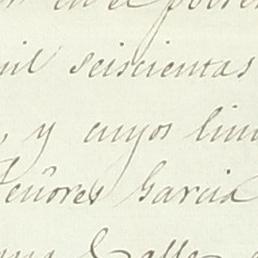 en el
mil seiscientas
, y cuyos lin
Señores Garcia
Calle